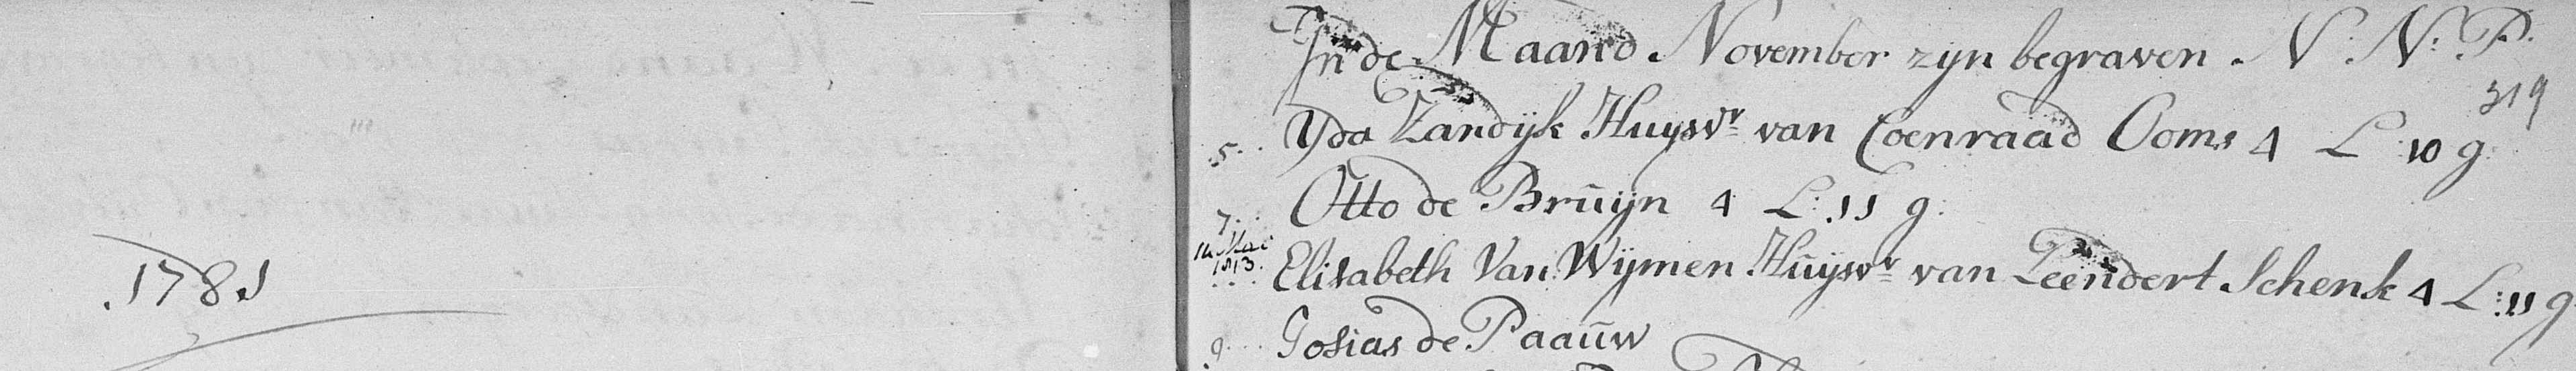 In de Maand November zyn begraven. V. N. P.
319
5... Yda Zandyk Huysvr van Coenraad Ooms 4 L 10 g
7... Otto de Bruÿn 4 L: 11 g:
1813. Elisabeth Van Wÿmen Huÿsvr van Leendert Schenk 4 L: 11 g
9... Josias de Paaũw
1781